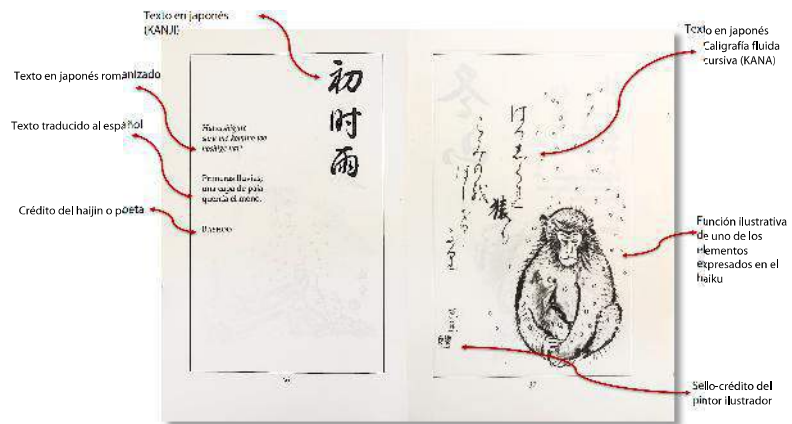 Texto en japonés
(KANJI)
Texto en japonés romanizado
Texto traducido al español
Crédito del haijin o poeta
初
时
雨
Hatsushigure
saru mo komino wo
hoshige nari
Primeras lluvias;
una capa de paja
quería el mono.
36
猿
37
Texto en japonés
Caligrafía fluida
cursiva (KANA)
Función ilustrativa
de uno de los
elementos
expresados en el
haiku
Sello-crédito del
pintor ilustrador